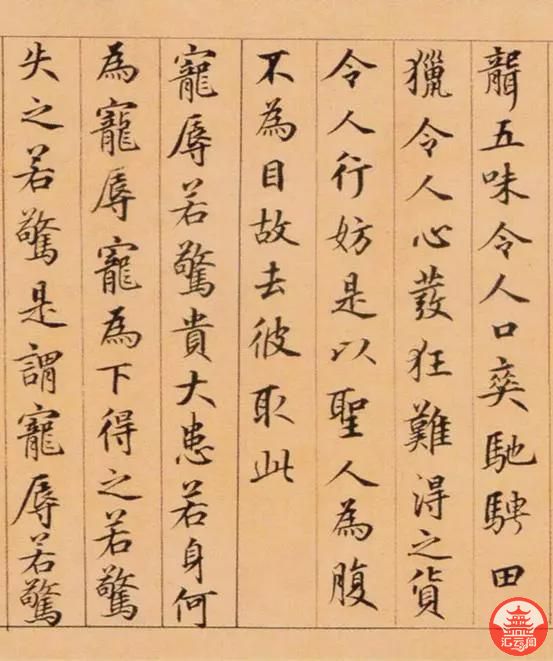 聾五味令人口爽馳騁田
獵令人心發狂難得之貨
令人行妨是以聖人為腹
不為目故去彼取此
寵辱若驚貴大患若身何
為寵辱寵為下得之若驚
失之若驚是謂寵辱若驚
汇云阁